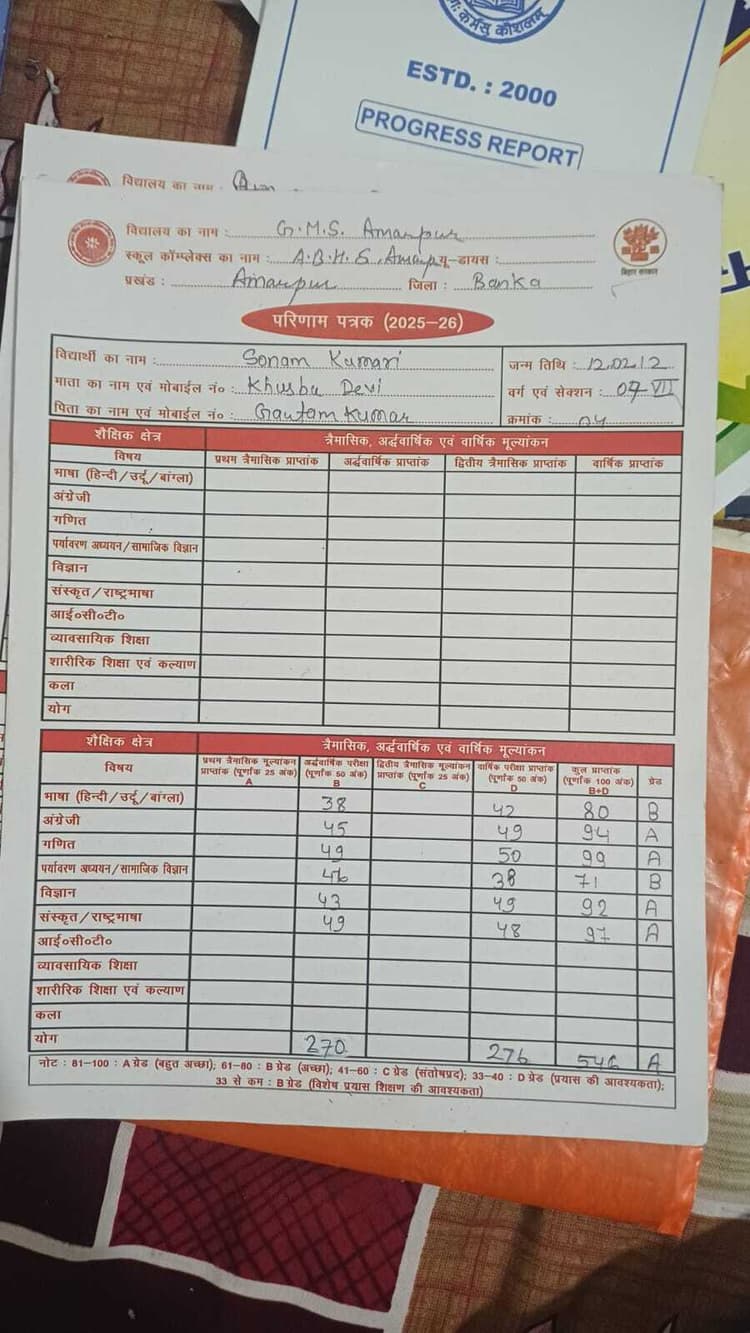 ः कर्मसु कौशलम्
ESTD. : 2000
PROGRESS REPORT
विद्यालय का नाम :
विद्यालय का नाम : G.M.S. Amarpur
स्कूल कॉम्प्लेक्स का नाम : A.B.H.S, Amarp यू-डायस :
प्रखंड : Amarpur जिला : Banka
बिहार सरकार
परिणाम पत्रक (2025-26)
विद्यार्थी का नाम : Sonam Kumari जन्म तिथि : 12.02.12
माता का नाम एवं मोबाईल नं० : Khusbu Devi वर्ग एवं सेक्शन : 07 VII
पिता का नाम एवं मोबाईल नं० : Gautam Kumar क्रमांक : 04
शैक्षिक क्षेत्र त्रैमासिक, अर्द्धवार्षिक एवं वार्षिक मूल्यांकन
विषय प्रथम त्रैमासिक प्राप्तांक अर्द्धवार्षिक प्राप्तांक द्वितीय त्रैमासिक प्राप्तांक वार्षिक प्राप्तांक
भाषा (हिन्दी/उर्दू/बांग्ला)
अंग्रेजी
गणित
पर्यावरण अध्ययन/सामाजिक विज्ञान
विज्ञान
संस्कृत/राष्ट्रभाषा
आई०सी०टी०
व्यावसायिक शिक्षा
शारीरिक शिक्षा एवं कल्याण
कला
योग
शैक्षिक क्षेत्र त्रैमासिक, अर्द्धवार्षिक एवं वार्षिक मूल्यांकन
विषय प्रथम त्रैमासिक मूल्यांकन प्राप्तांक (पूर्णांक 25 अंक) A अर्द्धवार्षिक परीक्षा (पूर्णांक 50 अंक) B द्वितीय त्रैमासिक मूल्यांकन प्राप्तांक (पूर्णांक 25 अंक) C वार्षिक परीक्षा प्राप्तांक (पूर्णांक 50 अंक) D कुल प्राप्तांक (पूर्णांक 100 अंक) B+D ग्रेड
भाषा (हिन्दी/उर्दू/बांग्ला) 38 42 80 B
अंग्रेजी 45 49 94 A
गणित 49 50 99 A
पर्यावरण अध्ययन/सामाजिक विज्ञान 46 38 71 B
विज्ञान 43 49 92 A
संस्कृत/राष्ट्रभाषा 49 48 97 A
आई०सी०टी०
व्यावसायिक शिक्षा
शारीरिक शिक्षा एवं कल्याण
कला
योग 270 276 546 A
नोट : 81-100 : A ग्रेड (बहुत अच्छा); 61-80 : B ग्रेड (अच्छा); 41-60 : C ग्रेड (संतोषप्रद); 33-40 : D ग्रेड (प्रयास की आवश्यकता);
33 से कम : B ग्रेड (विशेष प्रयास शिक्षण की आवश्यकता)